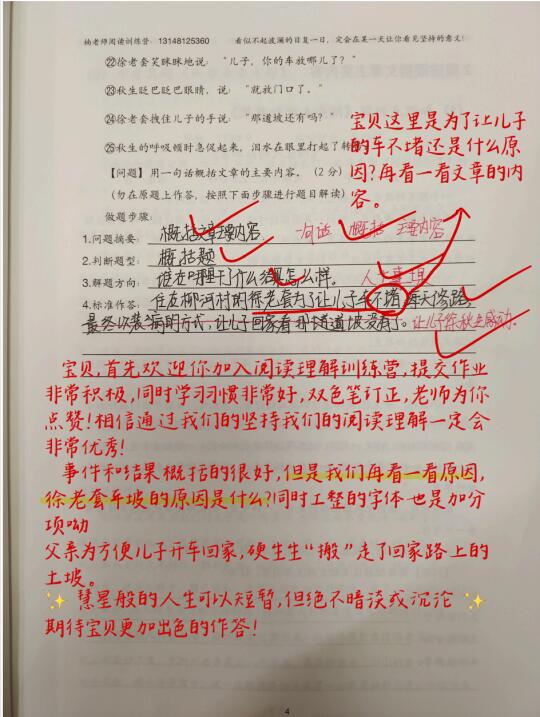 杨老师阅读训练营：13148125360 看似不起波澜的日复一日，定会在某一天让你看见坚持的意义！
㉒徐老套笑眯眯地说：“儿子，你的车放哪儿了？”
㉓秋生眨巴眨巴眼睛，说：“就放门口了。”
㉔徐老套拽住儿子的手说：“那道坡还有吗？”
㉕秋生的呼吸顿时急促起来，泪水在眼里打起了转
宝贝这里是为了让儿子
的车不堵还是什么原
因？再看一看文章的内
容。
【问题】用一句话概括文章的主要内容。（2分）
（勿在原题上作答，按照下面步骤进行题目解读）
做题步骤：
1.问题摘要： 概括文章主要内容 一句话 概括 主要内容
2.判断题型： 概括题
3.解题方向： 谁在哪里干了什么结果怎么样。 人 事
4.标准作答： 住在柳河村的徐老套为了让儿子车不堵，每天修路，
最终以装病的方式，让儿子回家看 那道坡没有了。让儿子徐秋生感动。
宝贝，首先欢迎你加入阅读理解训练营，提交作业
非常积极，同时学习习惯非常好，双色笔订正，老师为你
点赞！相信通过我们的坚持我们的阅读理解一定会
非常优秀！
事件和结果概括的很好，但是我们再看一看原因，
徐老套平坡的原因是什么？同时工整的字体也是加分
项呦
父亲为方便儿子开车回家，硬生生“搬”走了回家路上的
土坡。
✨ 慧星般的人生可以短暂，但绝不暗淡或沉沦 ✨
期待宝贝更加出色的作答！
4